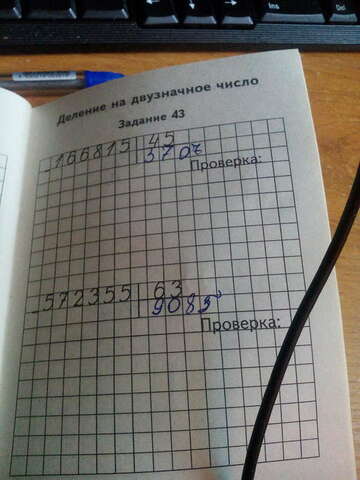 Деление на двузначное число
Задание 43
166815 45
3707
Проверка:
572355 63
9085
Проверка: